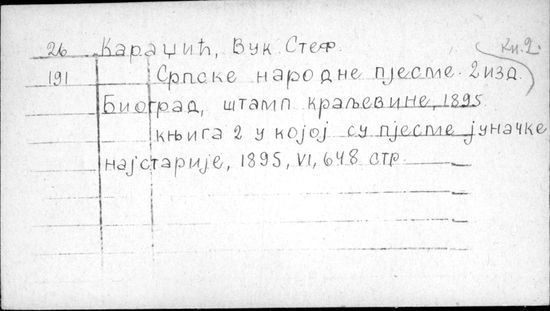 26 Караџић, Вук Стеф. Кн. 2.
191 Српске народне пјесме. 2 изд.
Биоград, штамп краљевине, 1895.
књига 2 у којој су пјесме јуначке
најстарије, 1895, VI, 648 стр.